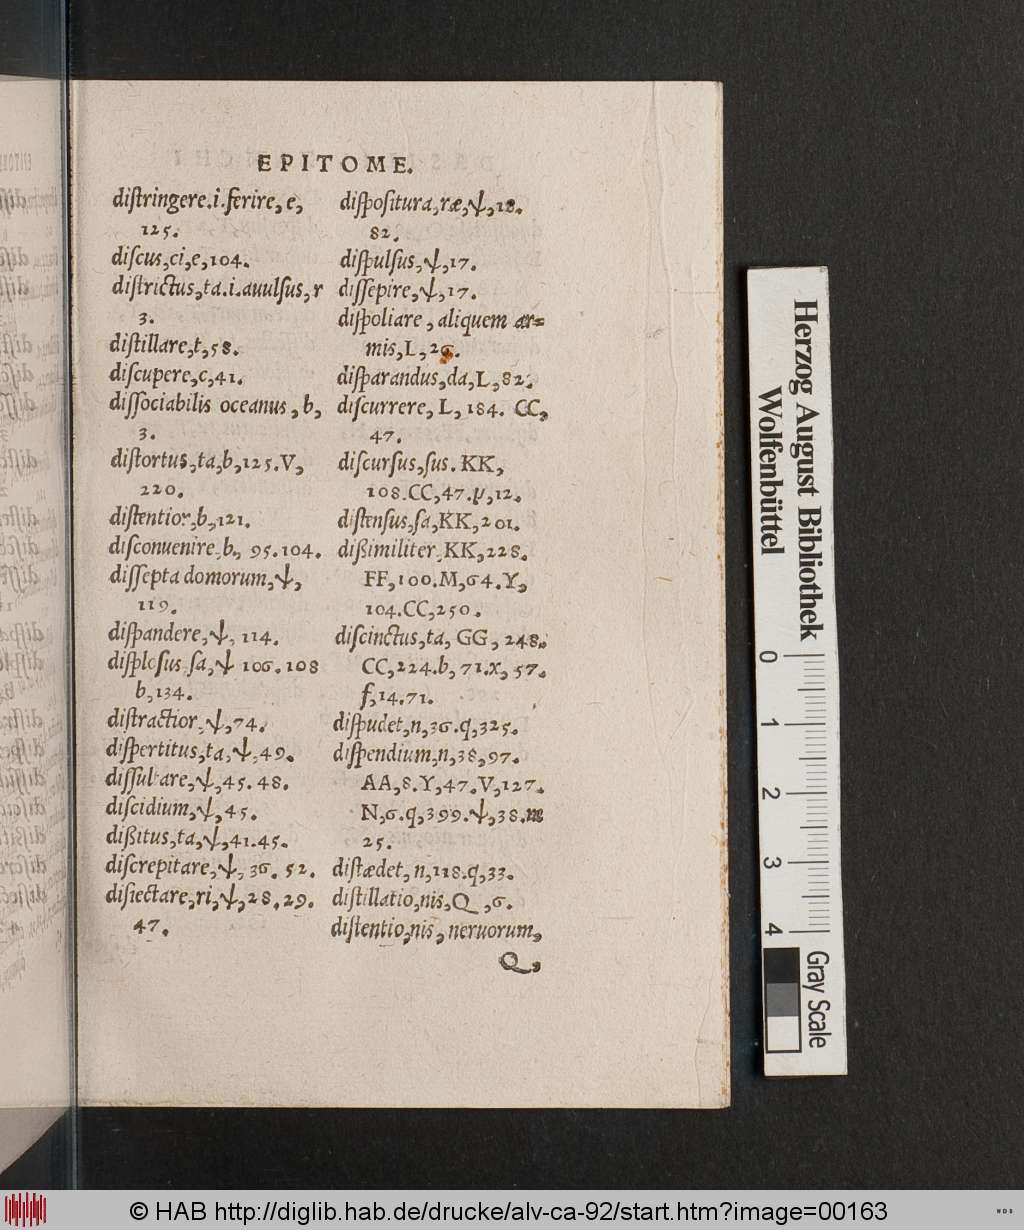 EPITOME.
diſtringere.i.ferire,e,
125.
diſcus,ci,e,104.
diſtrictus,ta.i.auulſus,r
3.
diſtillare,t,58.
diſcupere,c,41.
diſſociabilis oceanus,b,
3.
diſtortus,ta,b,125.V,
220.
diſtentior,b,121.
diſconuenire,b, 95.104.
diſſepta domorum,ψ,
119.
diſpandere,ψ, 114.
diſploſus,ſa,ψ 106.108
b,134.
diſtractior,ψ,74.
diſpertitus,ta,ψ,49.
diſſultare,ψ,45.48.
diſcidium,ψ,45.
dißitus,ta,ψ,41.45.
diſcrepitare,ψ, 36. 52.
diſiectare,ri,ψ,28.29.
47.
diſpoſitura,ræ,ψ,18.
82.
diſpulſus,ψ,17.
diſſepire,ψ,17.
diſpoliare, aliquem ar=
mis,L,26.
diſparandus,da,L,82.
diſcurrere,L,184. CC,
47.
diſcurſus,ſus.KK,
108.CC,47.μ,12.
diſtenſus,ſa,KK,201.
dißimiliter,KK,228.
FF,100.M,64.Y,
104.CC,250.
diſcinctus,ta,GG,248.
CC,224.b,71.x,57.
f,14.71.
diſpudet,n,36.q,325.
diſpendium,n,38,97.
AA,8.Y,47.V,127.
N,6.q,399.ψ,38.m
25.
diſtædet,n,118.q,33.
diſtillatio,nis,Q,6.
diſtentio,nis, neruorum,
Q,
Herzog August Bibliothek
Wolfenbüttel
0 1 2 3 4
Gray Scale
© HAB http://diglib.hab.de/drucke/alv-ca-92/start.htm?image=00163